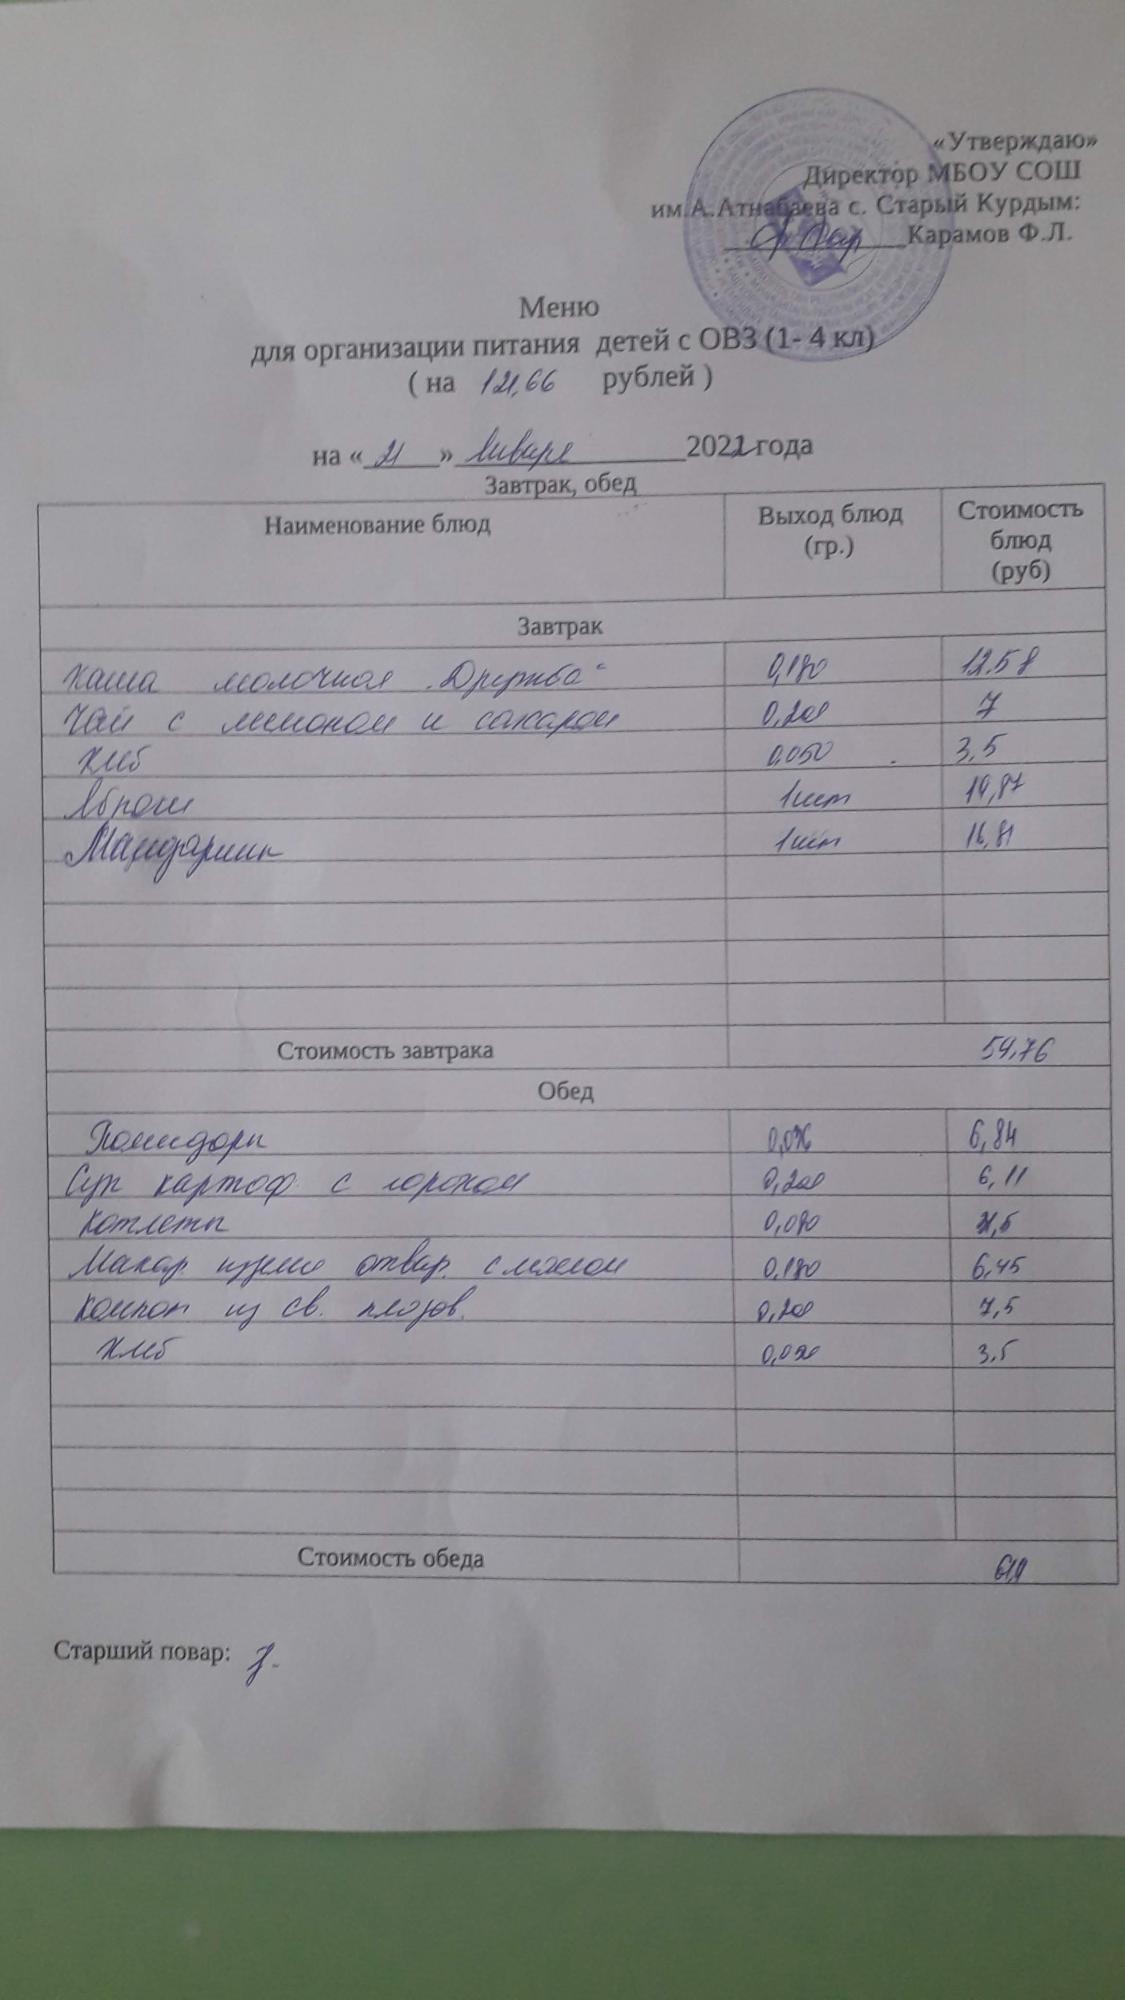 «Утверждаю»
Директор МБОУ СОШ
им.А.Атнабаева с. Старый Курдым:
Карамов Ф.Л.
Меню
для организации питания детей с ОВЗ (1- 4 кл)
( на 121,66 рублей )
на « 21 » января 2022 года
Завтрак, обед
Наименование блюд Выход блюд (гр.) Стоимость блюд (руб)
Завтрак
Каша молочная "Дружба" 0,180 12.58
Чай с лимоном и сахаром 0,200 7
Хлеб 0,050 3,5
Яблоки 1шт 19,87
Мандарины 1шт 16,81
Стоимость завтрака 59,76
Обед
Помидоры 6,84
Суп картоф. с горохом 0,200 6,11
Котлеты 0,080
Макар. изделия отвар. с маслом 0,180 6,45
Компот из св. плодов. 0,200 7,5
Хлеб 0,050 3.5
Стоимость обеда 61,9
Старший повар: